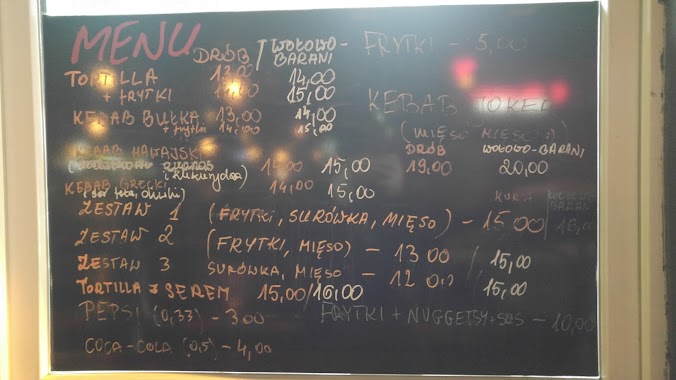 MENU DRÓB / WOŁOWO-BARANI
TORTILLA 13,00 14,00
+ FRYTKI 15,00
KEBAB BUŁKA 13,00 14,00
+ frytki 14,00 15,00
KEBAB HAWAJSKI
ananas i kukurydza) 15,00
KEBAB GRECKI 14,00 15,00
(ser feta, oliwki)
ZESTAW 1 (FRYTKI, SURÓWKA, MIĘSO) - 15,00
ZESTAW 2 (FRYTKI, MIĘSO) - 13 00 / 15,00
ZESTAW 3 SURÓWKA, MIĘSO - 12 00 15,00
TORTILLA z SEREM 15,00/16,00
PEPSI (0,33) - 3,00
COCA-COLA (0,5) - 4,00
FRYTKI - 5,00
KEBAB
(MIĘSO MIĘSO :)
DRÓB WOŁOWO-BARANI
19,00 20,00
FRYTKI + NUGGETSY + SOS - 10,00